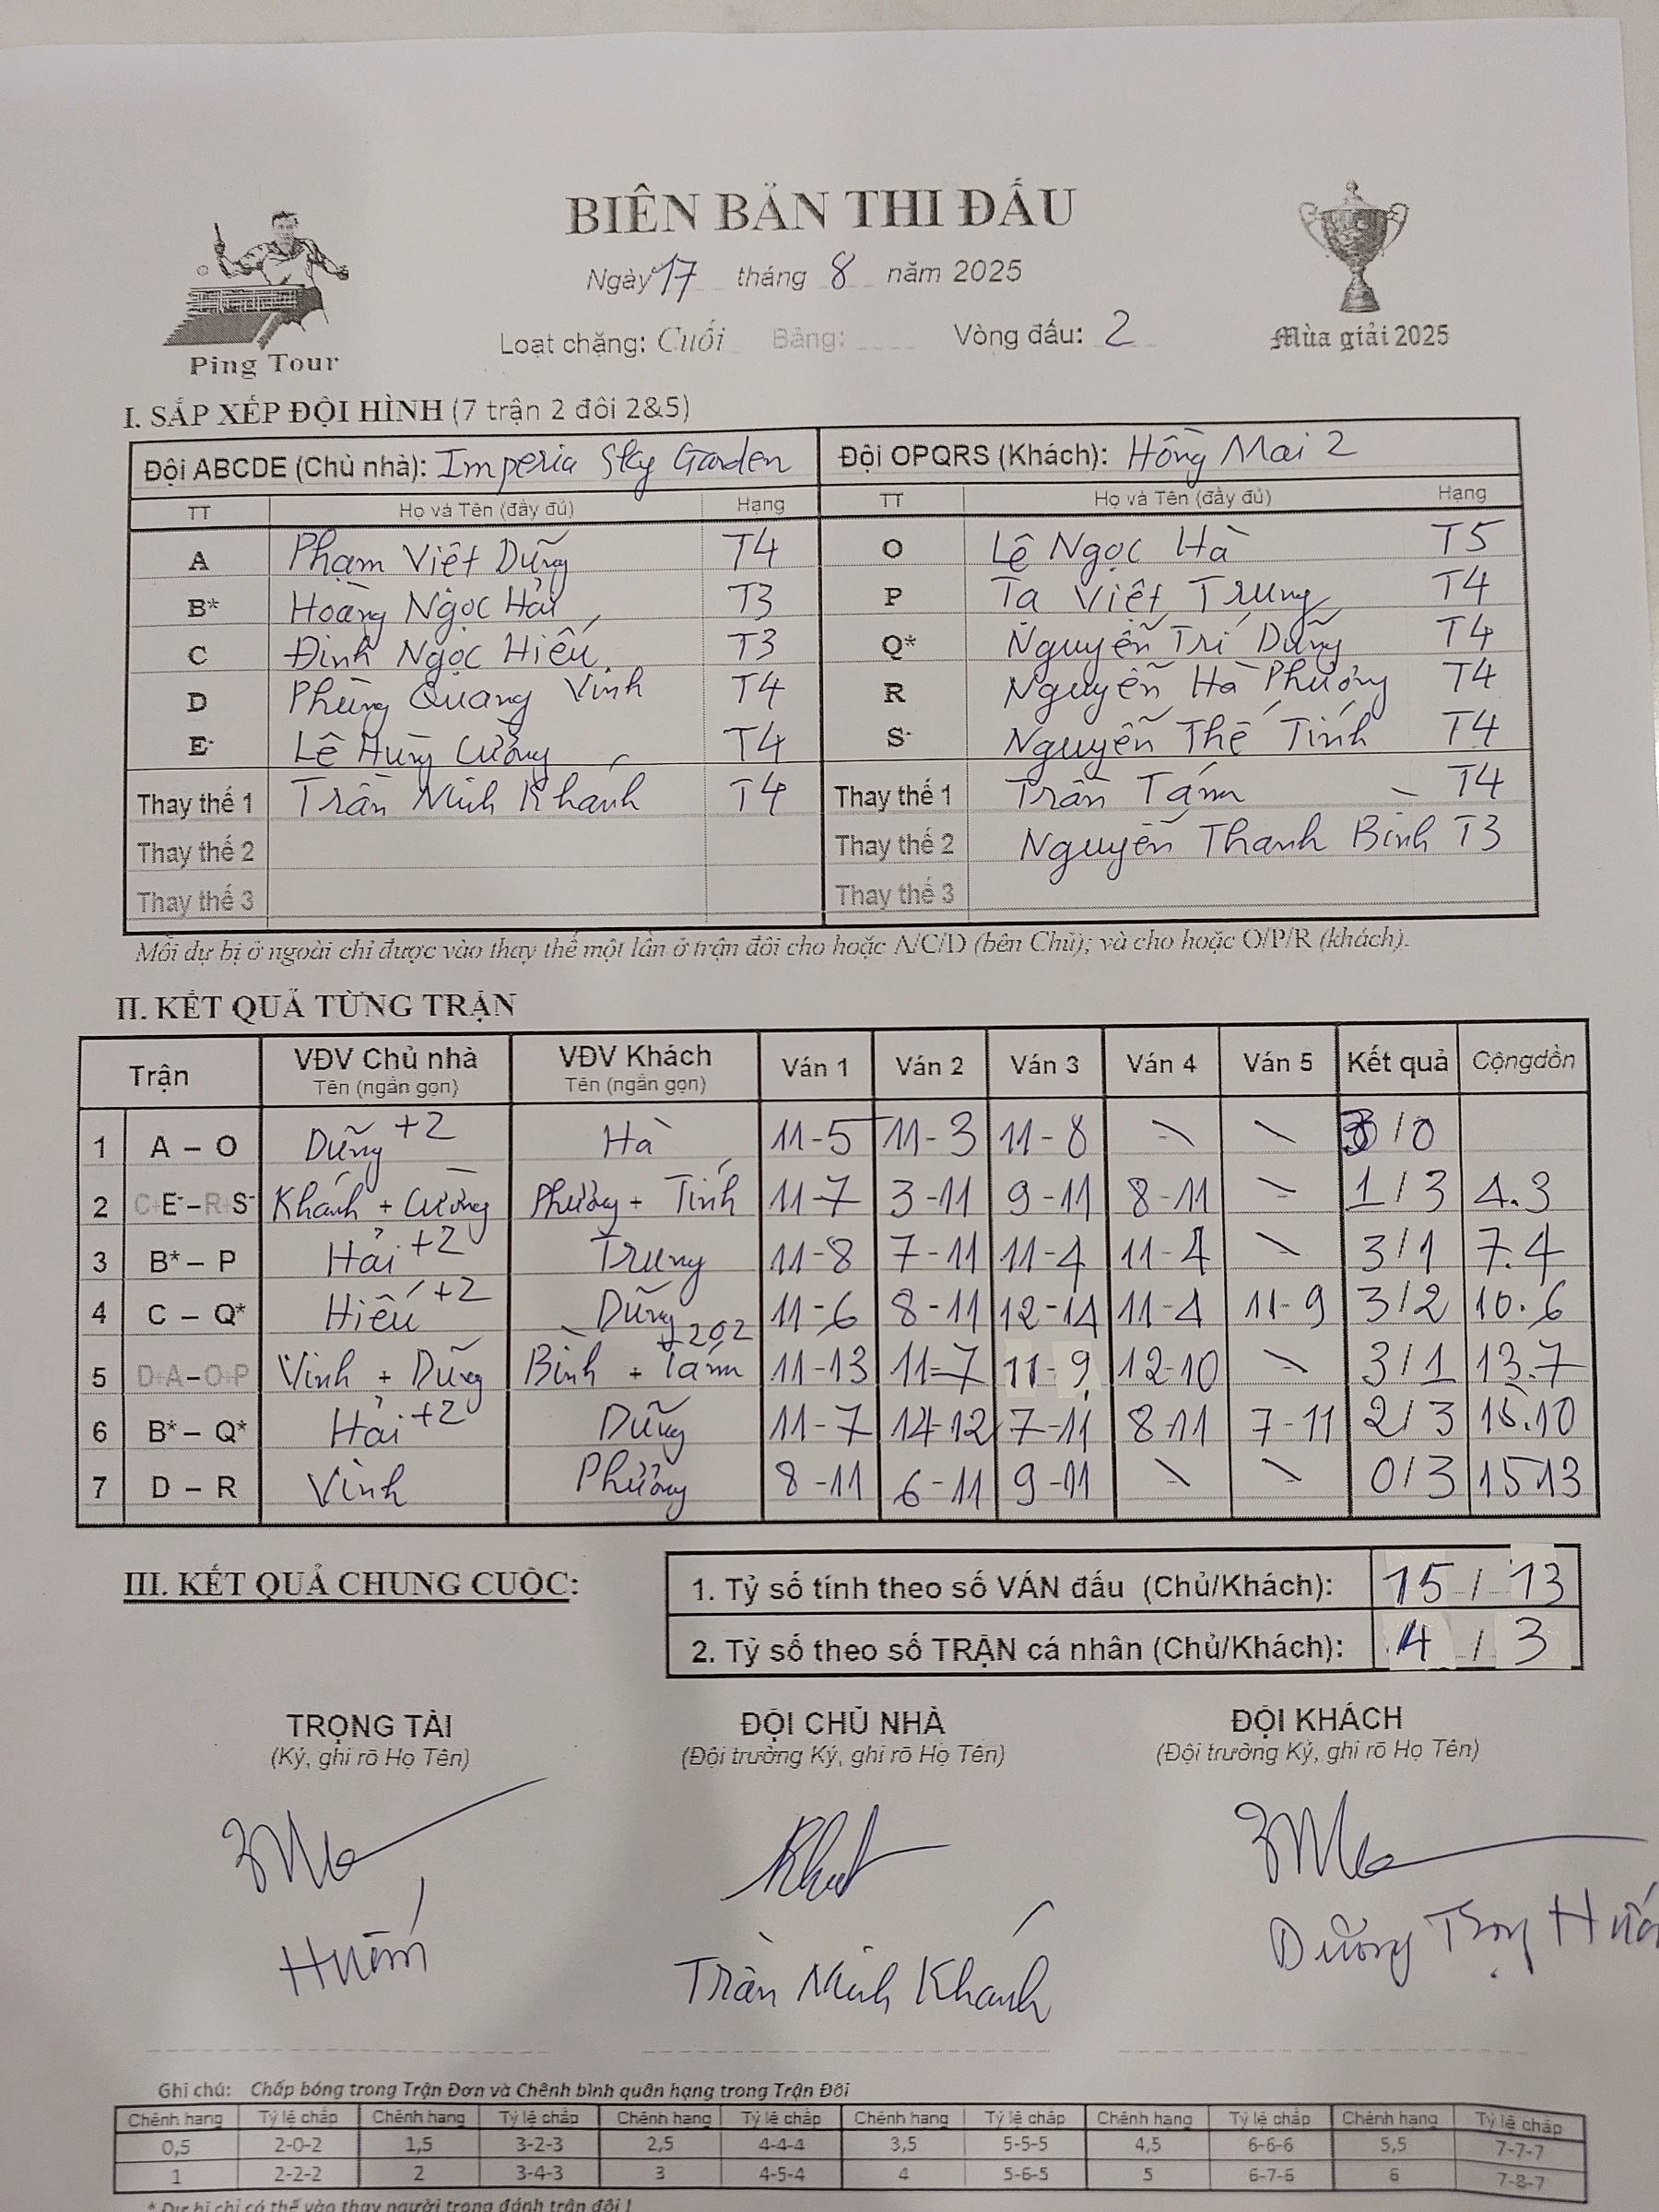 BIÊN BẢN THI ĐẤU
Ngày 17 tháng 8 năm 2025
Loạt chặng: Cuối Bảng: Vòng đấu: 2
Ping Tour
Mùa giải 2025
I. SẮP XẾP ĐỘI HÌNH (7 trận 2 đôi 2&5)
Đội ABCDE (Chủ nhà): Imperia Sky Garden Đội OPQRS (Khách): Hồng Mai 2
TT Họ và Tên (đầy đủ) Hạng TT Họ và Tên (đầy đủ) Hạng
A Phạm Việt Dũng T4 O Lê Ngọc Hà T5
B* Hoàng Ngọc Hải T3 P Tạ Việt Trung T4
C Đinh Ngọc Hiếu T3 Q* Nguyễn Trí Dũng T4
D Phùng Quang Vinh T4 R Nguyễn Hà Phương T4
E- Lê Hùng Cường T4 S- Nguyễn Thế Tính T4
Thay thế 1 Trần Minh Khánh T4 Thay thế 1 Trần Tám T4
Thay thế 2 Thay thế 2 Nguyễn Thanh Bình T3
Thay thế 3 Thay thế 3
Mỗi dự bị ở ngoài chỉ được vào thay thế một lần ở trận đôi cho hoặc A/C/D (bên Chủ); và cho hoặc O/P/R (khách).
II. KẾT QUẢ TỪNG TRẬN
Trận VĐV Chủ nhà Tên (ngắn gọn) VĐV Khách Tên (ngắn gọn) Ván 1 Ván 2 Ván 3 Ván 4 Ván 5 Kết quả Cộngdồn
1 A – O Dũng +2 Hà 11-5 11-3 11-8 \ \ 3/0
2 C+E- – R+S- Khánh + Cường Phương + Tính 11-7 3-11 9-11 8-11 \ 1/3 4.3
3 B* – P Hải +2 Trung 11-8 7-11 11-4 11-4 \ 3/1 7.4
4 C – Q* Hiếu +2 Dũng 11-6 8-11 12-14 11-4 11-9 3/2 10.6
5 D+A – O+P Vinh + Dũng Bình + Tám +202 11-13 11-7 11-9 12-10 \ 3/1 13.7
6 B* – Q* Hải +2 Dũng 11-7 14-12 7-11 8-11 7-11 2/3 15.10
7 D – R Vinh Phương 8-11 6-11 9-11 \ \ 0/3 15 13
III. KẾT QUẢ CHUNG CUỘC:
1. Tỷ số tính theo số VÁN đấu (Chủ/Khách): 15 / 13
2. Tỷ số theo số TRẬN cá nhân (Chủ/Khách): 4 / 3
TRỌNG TÀI ĐỘI CHỦ NHÀ ĐỘI KHÁCH
(Ký, ghi rõ Họ Tên) (Đội trưởng Ký, ghi rõ Họ Tên) (Đội trưởng Ký, ghi rõ Họ Tên)
Trần Minh Khánh
Ghi chú: Chấp bóng trong Trận Đơn và Chênh bình quân hạng trong Trận Đôi
Chênh hạng Tỷ lệ chấp Chênh hạng Tỷ lệ chấp Chênh hạng Tỷ lệ chấp Chênh hạng Tỷ lệ chấp Chênh hạng Tỷ lệ chấp Chênh hạng Tỷ lệ chấp
0,5 2-0-2 1,5 3-2-3 2,5 4-4-4 3,5 5-5-5 4,5 6-6-6 5,5 7-7-7
1 2-2-2 2 3-4-3 3 4-5-4 4 5-6-5 5 6-7-6 6 7-8-7
* Dự bị chỉ có thể vào thay người trong đánh trận đôi !